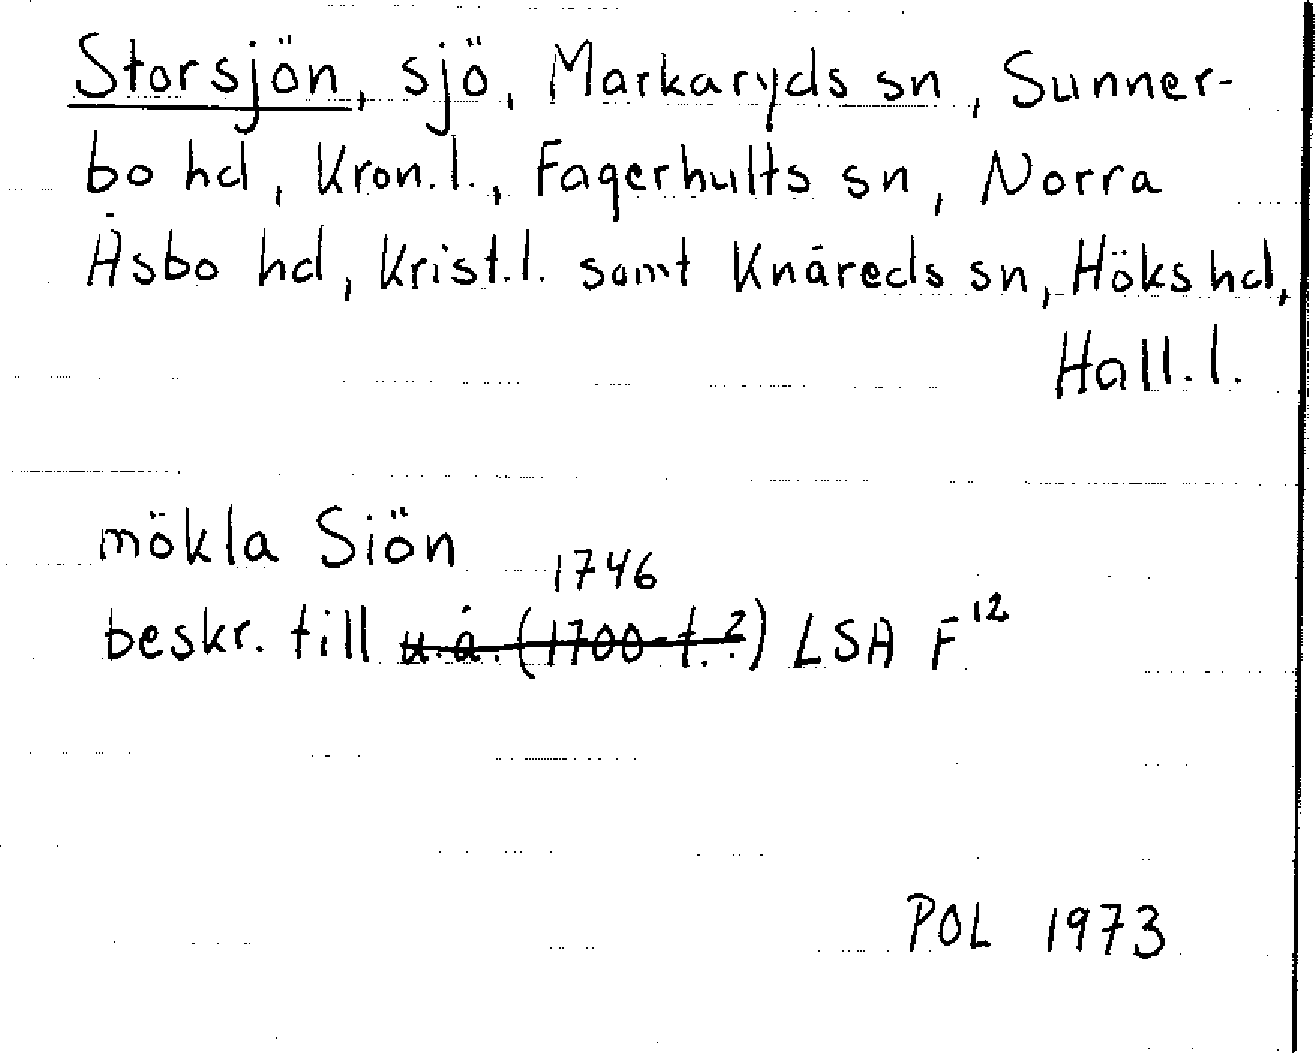 Storsjön, sjö, Markaryds sn, Sunner-
bo hd, Kron.l., Fagerhults sn, Norra
Åsbo hd, Krist.l. samt Knäreds sn, Höks hd,
Hall.l.
mökla Siön
1746
beskr. till u.å. (1700-t.?) LSA F12
POL 1973